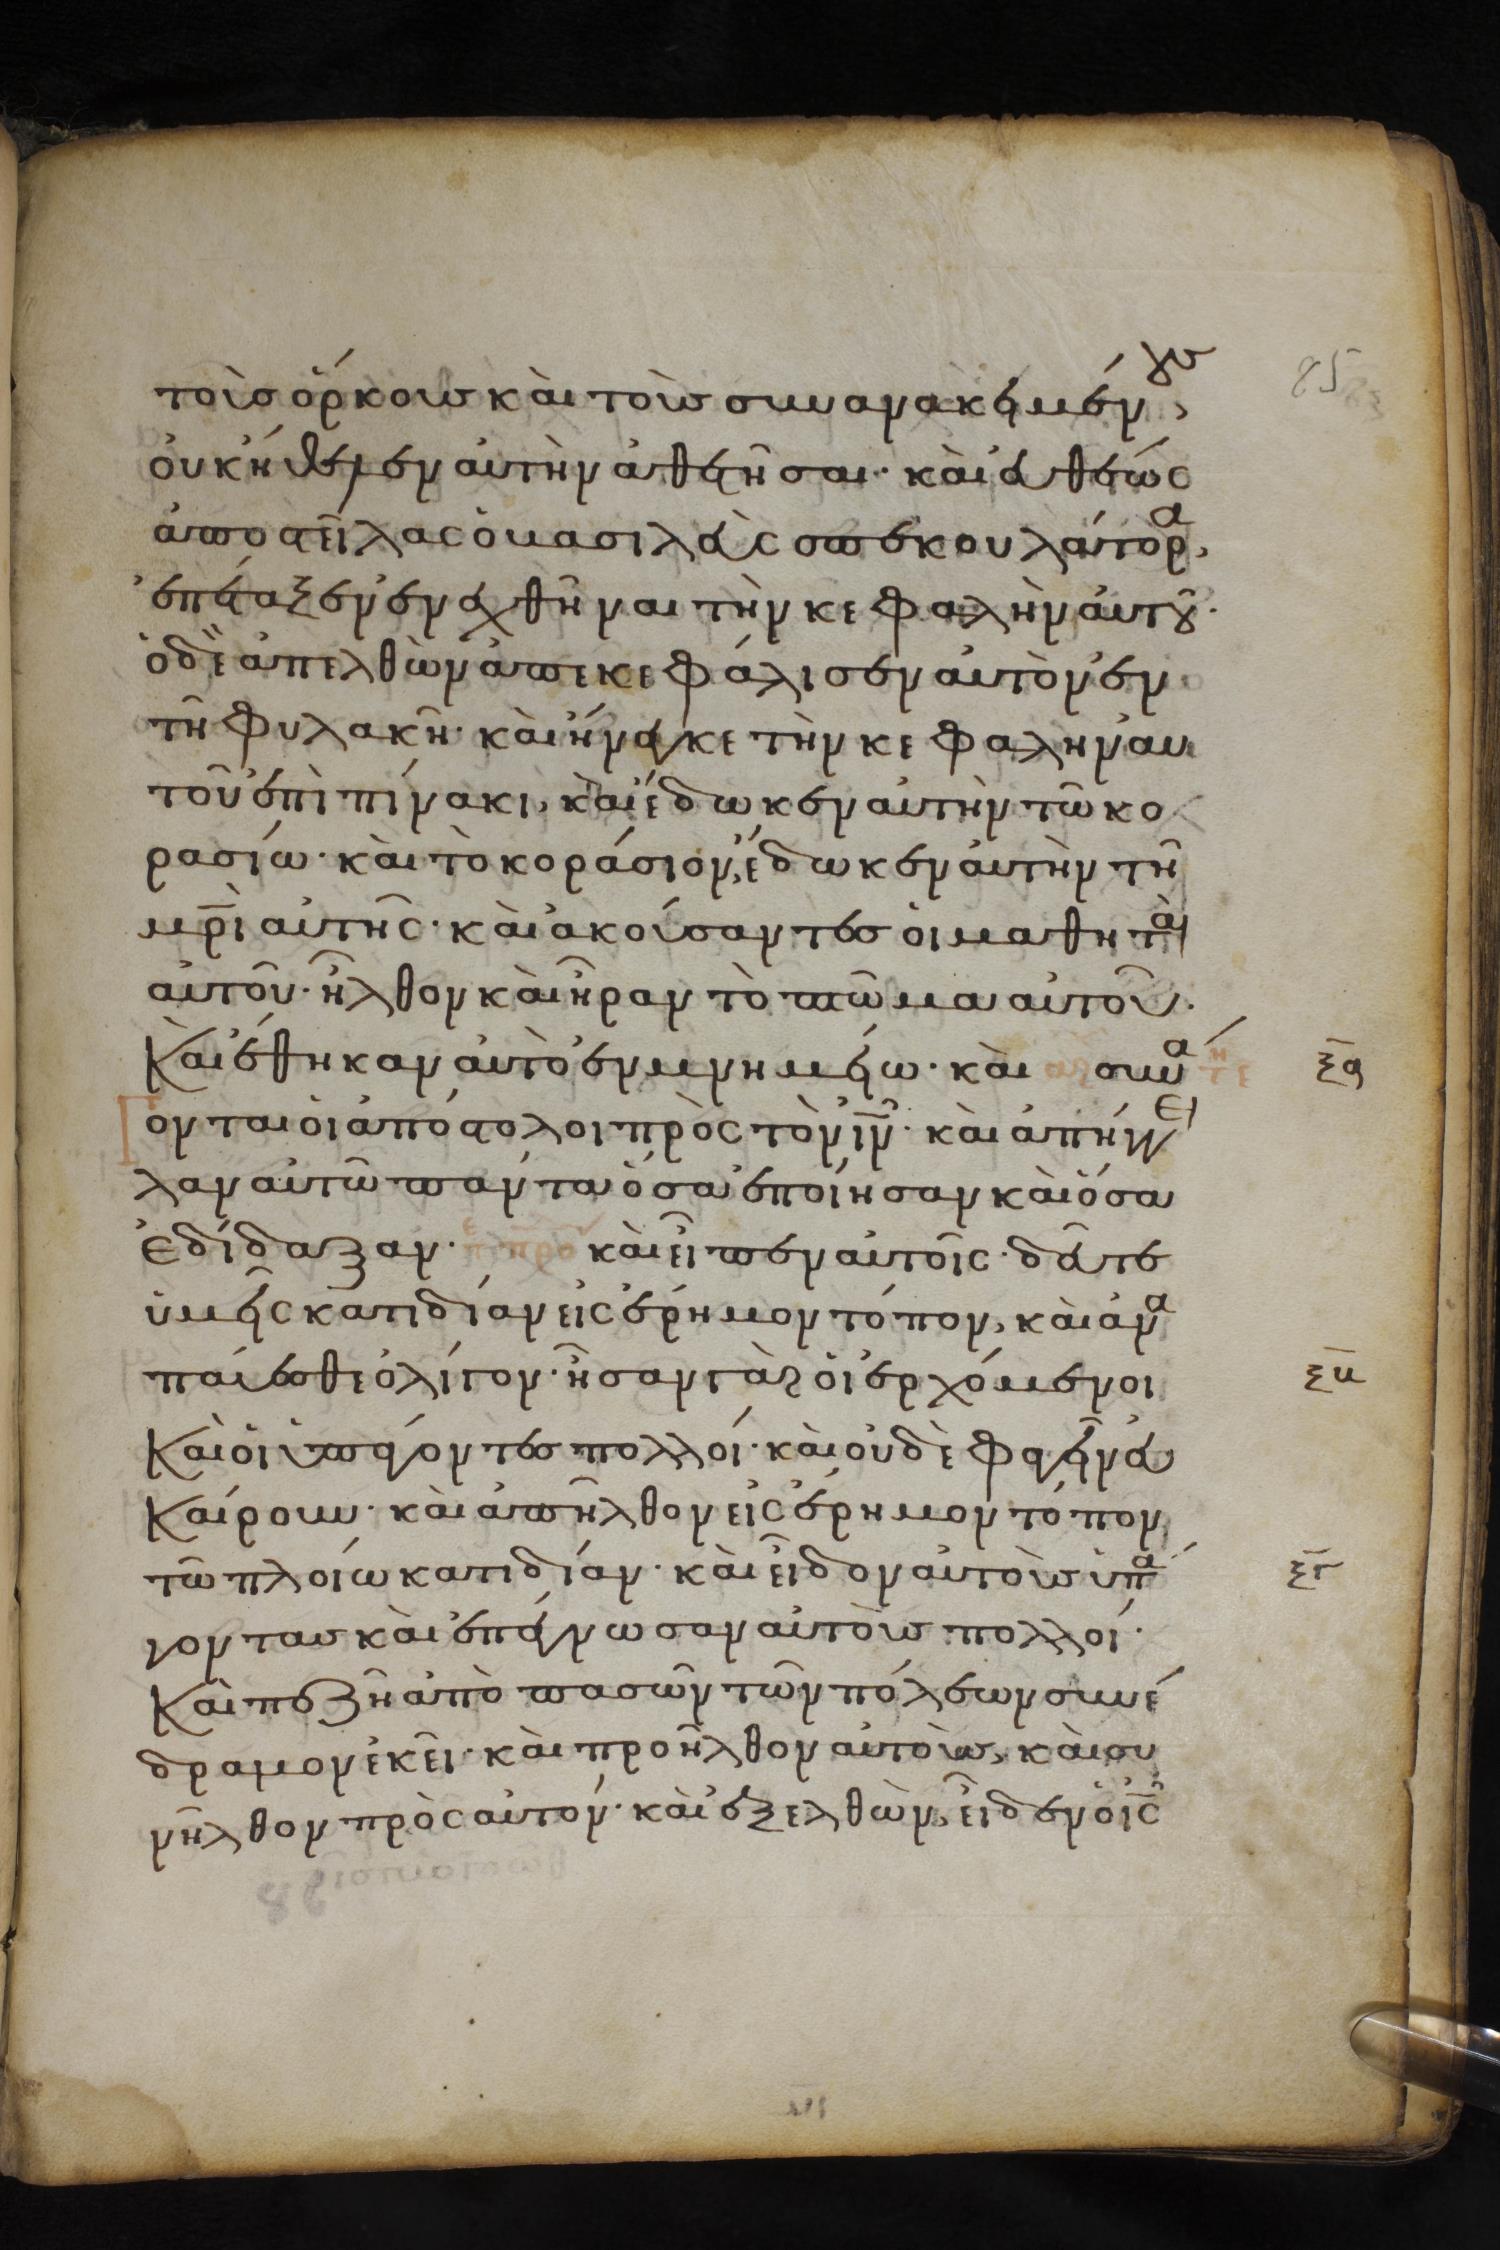 τοὺς ὅρκους καὶ τοὺς συνανακειμέν,ους
οὐκ ἠθέλησεν αὐτὴν ἀθετῆσαι· καὶ εὐθέως
ἀποστείλας ὁ βασιλεὺς σπεκουλάτορα,
ἐπέταξεν ἐνεχθῆναι τὴν κεφαλὴν αὐτοῦ·
ὁ δὲ ἀπελθὼν ἀπεκεφάλισεν αὐτὸν ἐν
τῆ φυλακῆ· καὶ ἤνεγκε τὴν κεφαλην αυ
τοῦ ἐπὶ πίνακι, καὶ ἔδωκεν αὐτὴν τῶ κο
ρασίω· καὶ τὸ κοράσιον, ἔδωκεν αὐτὴν τῆ
μρὶ αὐτῆς· καὶ ἀκούσαντες οἱ μαθηταὶ
αὐτοῦ· ἦλθον καὶ ἦραν τὸ πτῶμα αὐτοῦ·
Καὶ ἔθηκαν αὐτὸ ἐν μνημείω· καὶ συνά
ξα
γονται οἱ ἀπόστολοι πρὸς τὸν ἰν· καὶ ἀπήγγει
λαν αὐτῶ πάντα ὅσα ἐποίησαν καὶ ὅσα
ἐδίδαξαν· καὶ εἶπεν αὐτοῖς· δεῦτε
ὑμεῖς κατιδίαν εἰς ἔρημον τόπον, καὶ ἀνα
παύεσθε ὀλίγον· ἦσαν γὰρ οἱ ἐρχόμενοι
ξβ
Καὶ οἱ ὑπάγοντες πολλοί· καὶ οὐδὲ φαγεῖν εὐ
καίρουν· καὶ ἀπῆλθον εἰς ἔρημον τόπον
τῶ πλοίω κατιδίαν· καὶ εἶδον αὐτοὺς ὑπά
ξγ
γοντας καὶ ἐπέγνωσαν αὐτοὺς πολλοί·
Καὶ πεζῆ ἀπὸ πασῶν τῶν πόλεων συνέ
δραμον ἐκεῖ· καὶ προῆλθον αὐτοὺς, καὶ συ
νῆλθον πρὸς αὐτον· καὶ ἐξελθὼν, εἶδεν ὁ ις